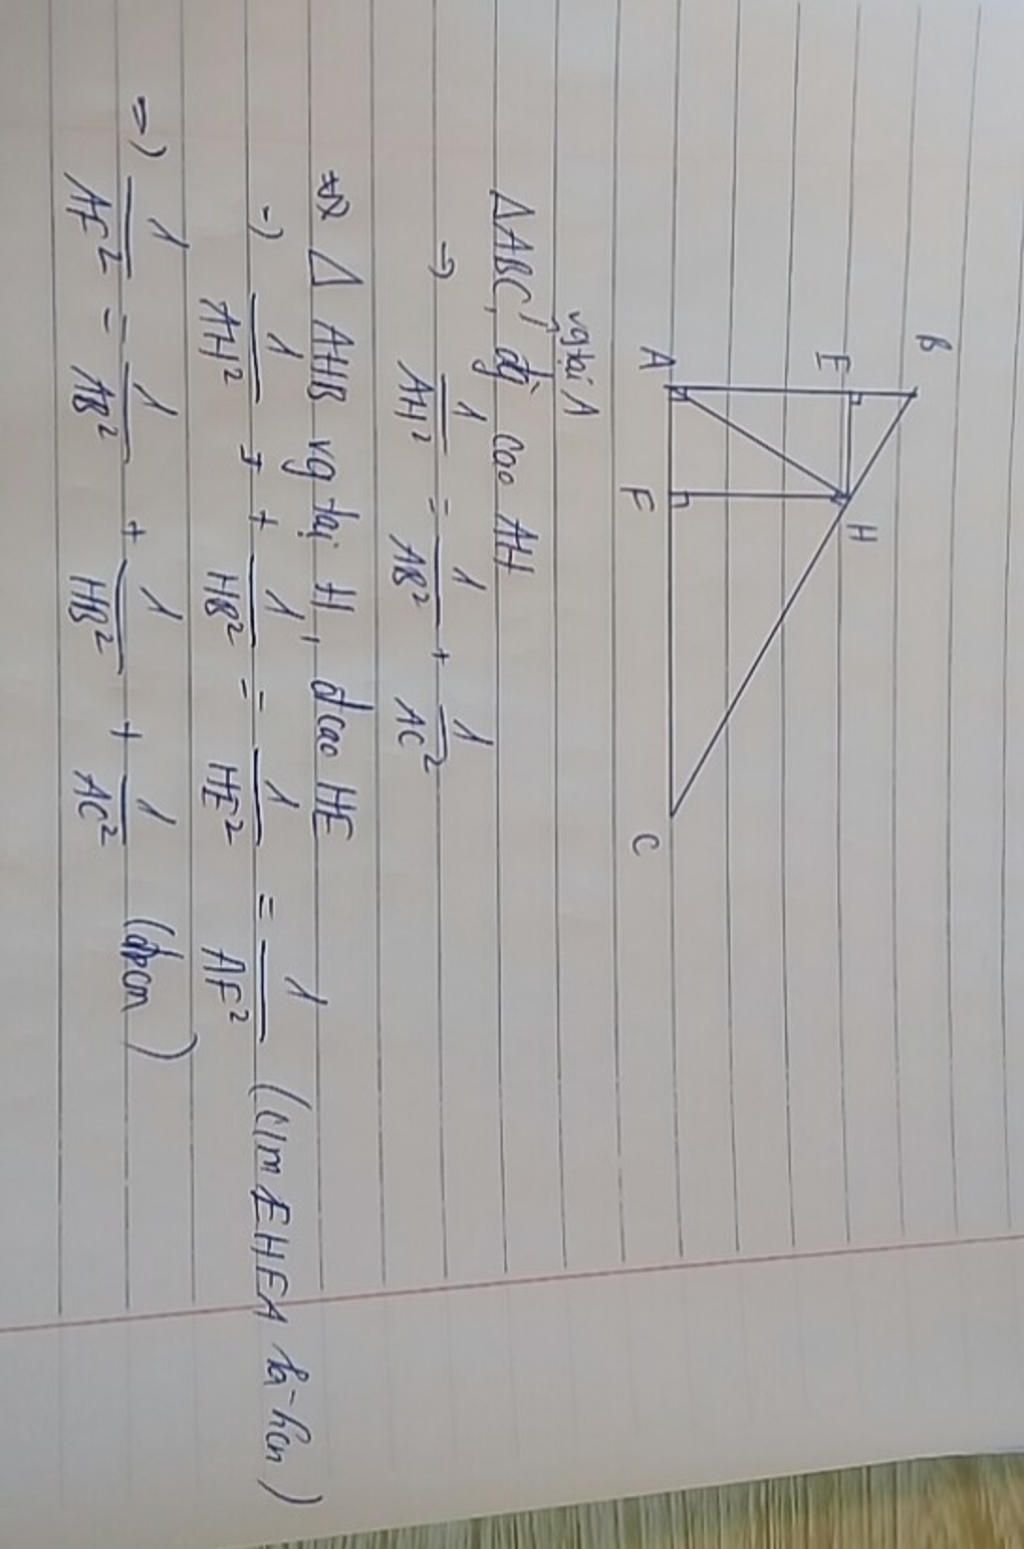 B
E
H
A
F
C
vg tại A
ΔABC, đg cao AH
=> 1/AH² = 1/AB² + 1/AC²
Δ AHB vg tại H, đcao HE
=> 1/AH² + 1/HB² = 1/HE² = 1/AF² (c/m EHFA là hcn)
=> 1/AF² = 1/AB² + 1/HB² + 1/AC² (đpcm)